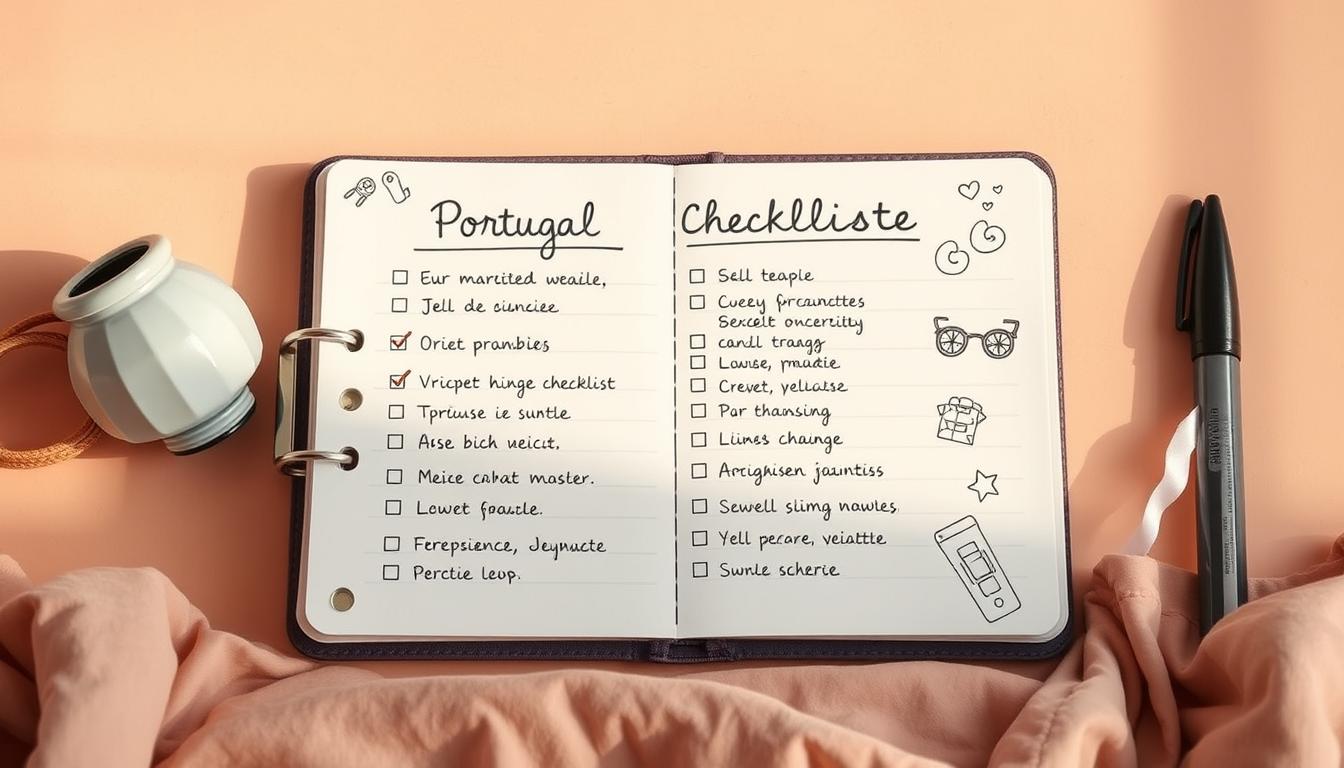 Portugal
Checklliste
Eur marcited weaile,
Jell de ciunciee
Oriet prambies
Vricpet hinge checklist
Tprtuse ie suntle
Asse bich ueicit,
Meice cabat master.
Lowet foastle.
Ferepsience, Jeynucte
Perctie leup.
Sell teaple
Cueey frcauncttes
Sexcelt oncercitly
candl trangg
Louse, pmadie
Crevet, yelcatse
Par thamsing
Liimes change
Arcighisen jauntiss
Sewell slimg nawles
Yell pecare, veiattte
Swnle scherie